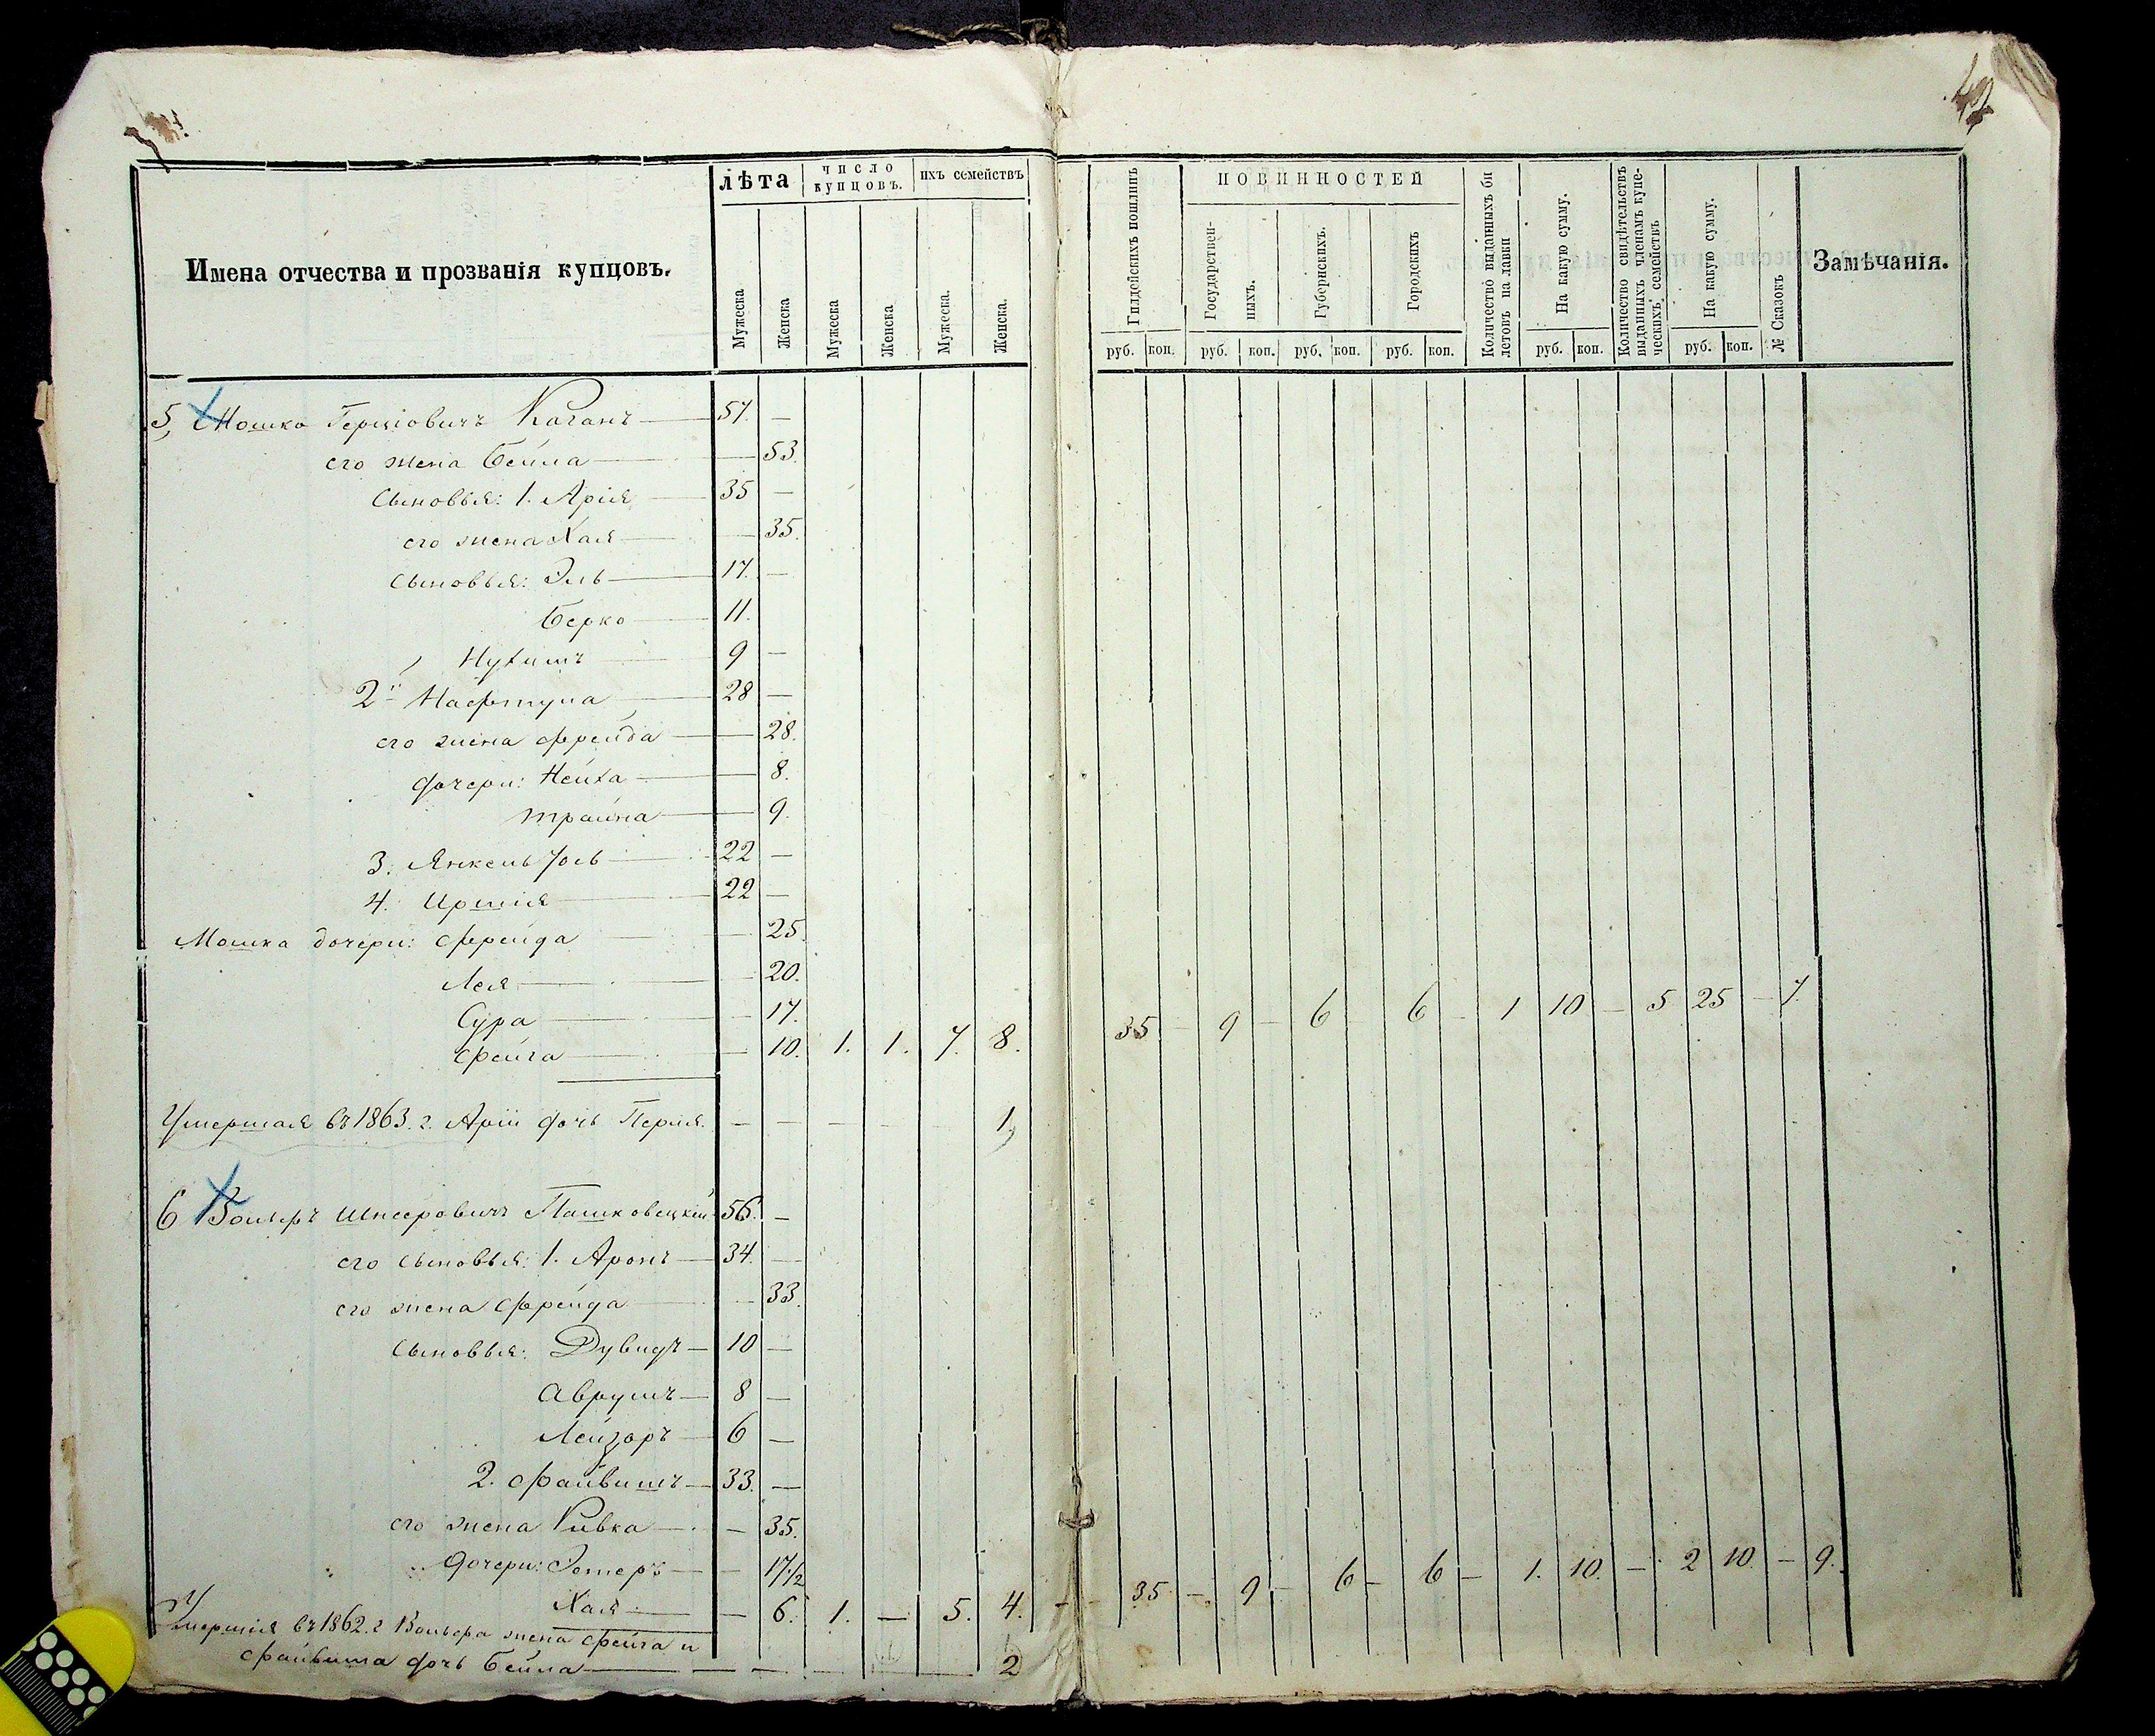 Имена отчества и прозванія купцовъ.
лѣта
число купцовъ.
ихъ семействъ
Мужеска
Женска
Мужеска
Женска
Мужеска.
Женска.
Гилдейскихъ пошлинъ
ПОВИННОСТЕЙ
Государственныхъ.
Губернскихъ.
Городскихъ
Количество выданныхъ билетовъ на лавки
На какую сумму.
Количество свидѣтельствъ выданныхъ членамъ купеческихъ семействъ
На какую сумму.
№ Сказокъ
Замѣчанія.
руб. коп. руб. коп. руб. коп. руб. коп. руб. коп. руб. коп.
5, Мошко Гершовичъ Каганъ 57. —
его жена Бейла — 53.
Сыновья: 1. Арія 35 —
его жена Хая — 35.
сыновья: Эль 17. —
Берко 11.
Нухимъ 9 —
2й Нафтула 28 —
его жена Фрейда — 28.
дочери: Нейха — 8.
Трайна — 9.
3. Янкель Іось 22 —
4. Иршія 22 —
Мошка дочери: Фрейда — 25.
Лея — 20.
Сура — 17.
Фейга — 10. 1. 1. 7. 8. 35 9 — 6 6 — 1 10 — 5 25 — 7.
Умершая въ 1863. г. Арія дочь Перля. — — — — 1
6 Вольфъ Шнееровичъ Пашковецкій 56. —
его сыновья: 1. Аронъ 34. —
его жена Фрейда — 33.
сыновья: Дувидъ 10 —
Аврумъ 8 —
Лейзоръ 6 —
2. Файвишъ 33. —
его жена Ривка — 35.
дочери: Эстеръ — 17½
Хая — 6. 1. — 5. 4. — 35 — 9 — 6 — 6 — 1. 10. — 2 10. — 9.
Умершія въ 1862. г Вольфа жена Фейга и
Файвиша дочь Бейла — — — 2